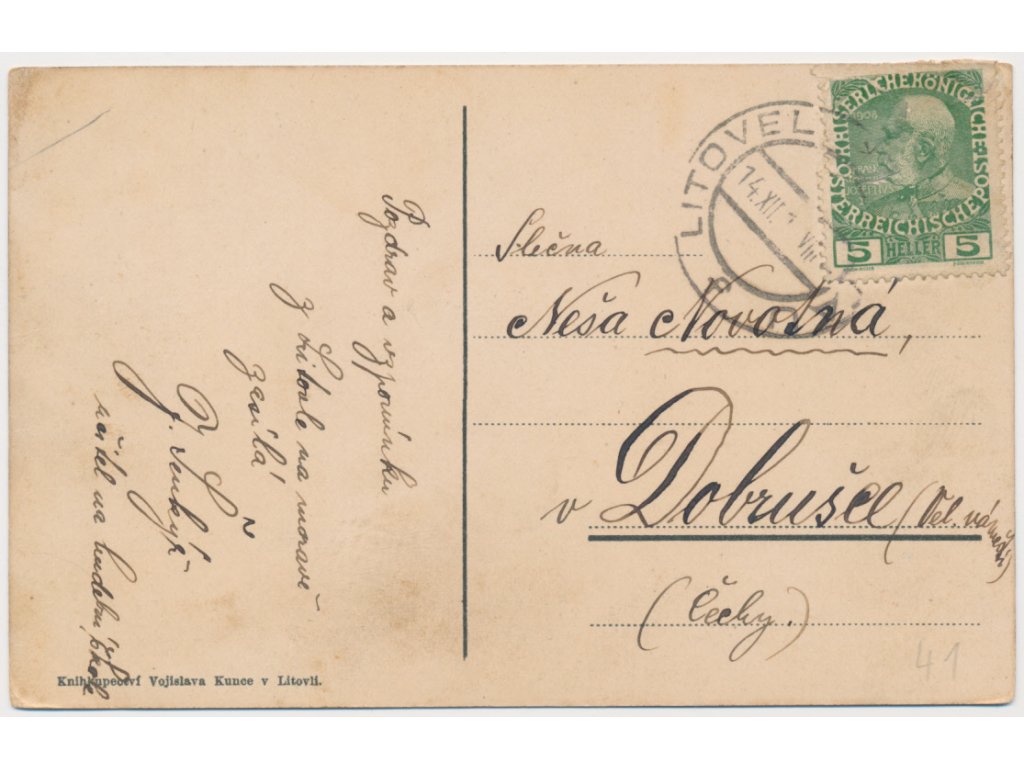 Pozdrav a vzpomínku
z Litovle na moravě
zasílá
J. Šenkýř
učitel na hudební škole
Knihkupectví Vojislava Kunce v Litovli.
LITOVEL
14.XII. VIII
KAISERL.KHE KÖNIGLICHE ÖSTERREICHISCHE POST
1908
5 HELLER 5
Slečna
Neša Novotná,
v Dobrušce (Vel. náměstí)
(Čechy.)
41